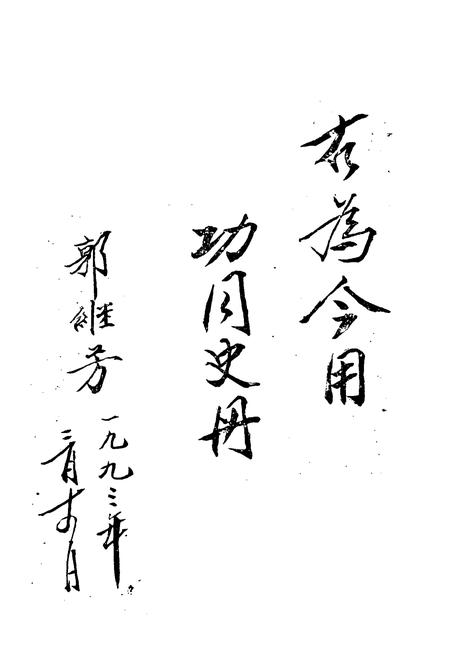 古為今用
功同史册
郭继芳
一九九三年
三月十日